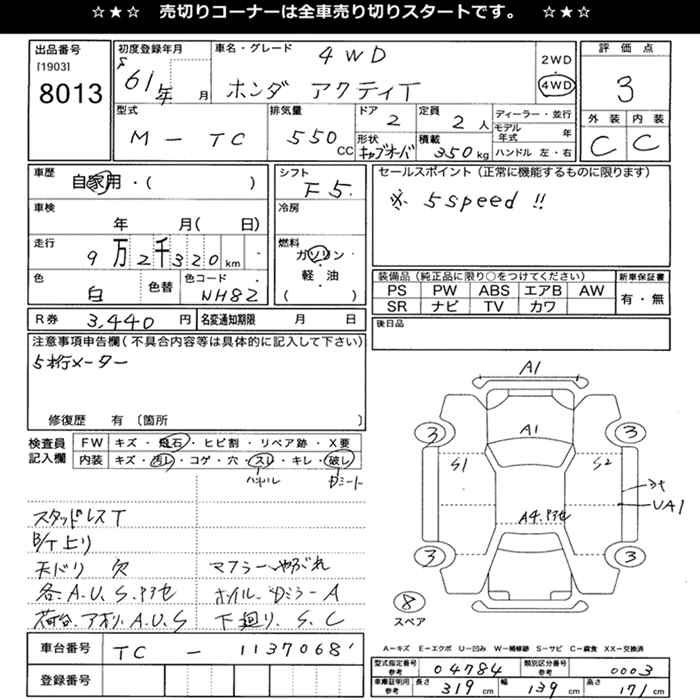 ☆★☆ 売切りコーナーは全車売り切りスタートです。 ☆★☆
出品番号
[1903]
8013
初度登録年月
S61年 月
車名・グレード
4WD
ホンダ アクティT
2WD
4WD
評価点
3
外装 内装
C C
型式
M-TC
排気量
550 CC
ドア
2
定員
2人
形状
キャブオーバ
積載
350kg
ディーラー・並行
モデル年式 年
ハンドル 左・右
車歴
自家用・( )
車検
年 月( 日)
走行
9万2千320km
色
白
色替
色コード
NH82
シフト
F5
冷房
燃料
ガソリン
軽・油
( )
セールスポイント(正常に機能するものに限ります)
※ 5speed !!
装備品(純正品に限り○をつけてください)
PS PW ABS エアB AW
SR ナビ TV カワ
新車保証書
有・無
R券 3,440円
名変通知期限 月 日
後日品
注意事項申告欄(不具合内容等は具体的に記入して下さい)
5桁メーター
修復歴 有 〔箇所 〕
検査員記入欄
FW キズ・飛石・ヒビ割・リペア跡・X要
内装 キズ・汚レ・コゲ・穴・スレ・キレ・破レ
ハンドル シート
スタッドレスT
B/T上り
天バリ 欠
マフラーやぶれ
各.A.U.S.アワセ
ホイル.Dミラー A
荷台.アオリ.A.U.S
下廻り.S.C
A1
A1
3 3
S1 S2
UA1
A4.アワセ
3 3
8
スペア
車台番号
TC - 1137068
登録番号
A-キズ E-エクボ U-凹み W-補修跡 S-サビ C-腐食 XX-交換済
型式指定番号 参考 04784
類別区分番号 参考 0003
車庫証明用 参考 長さ 319cm 幅 139cm 高さ 171cm